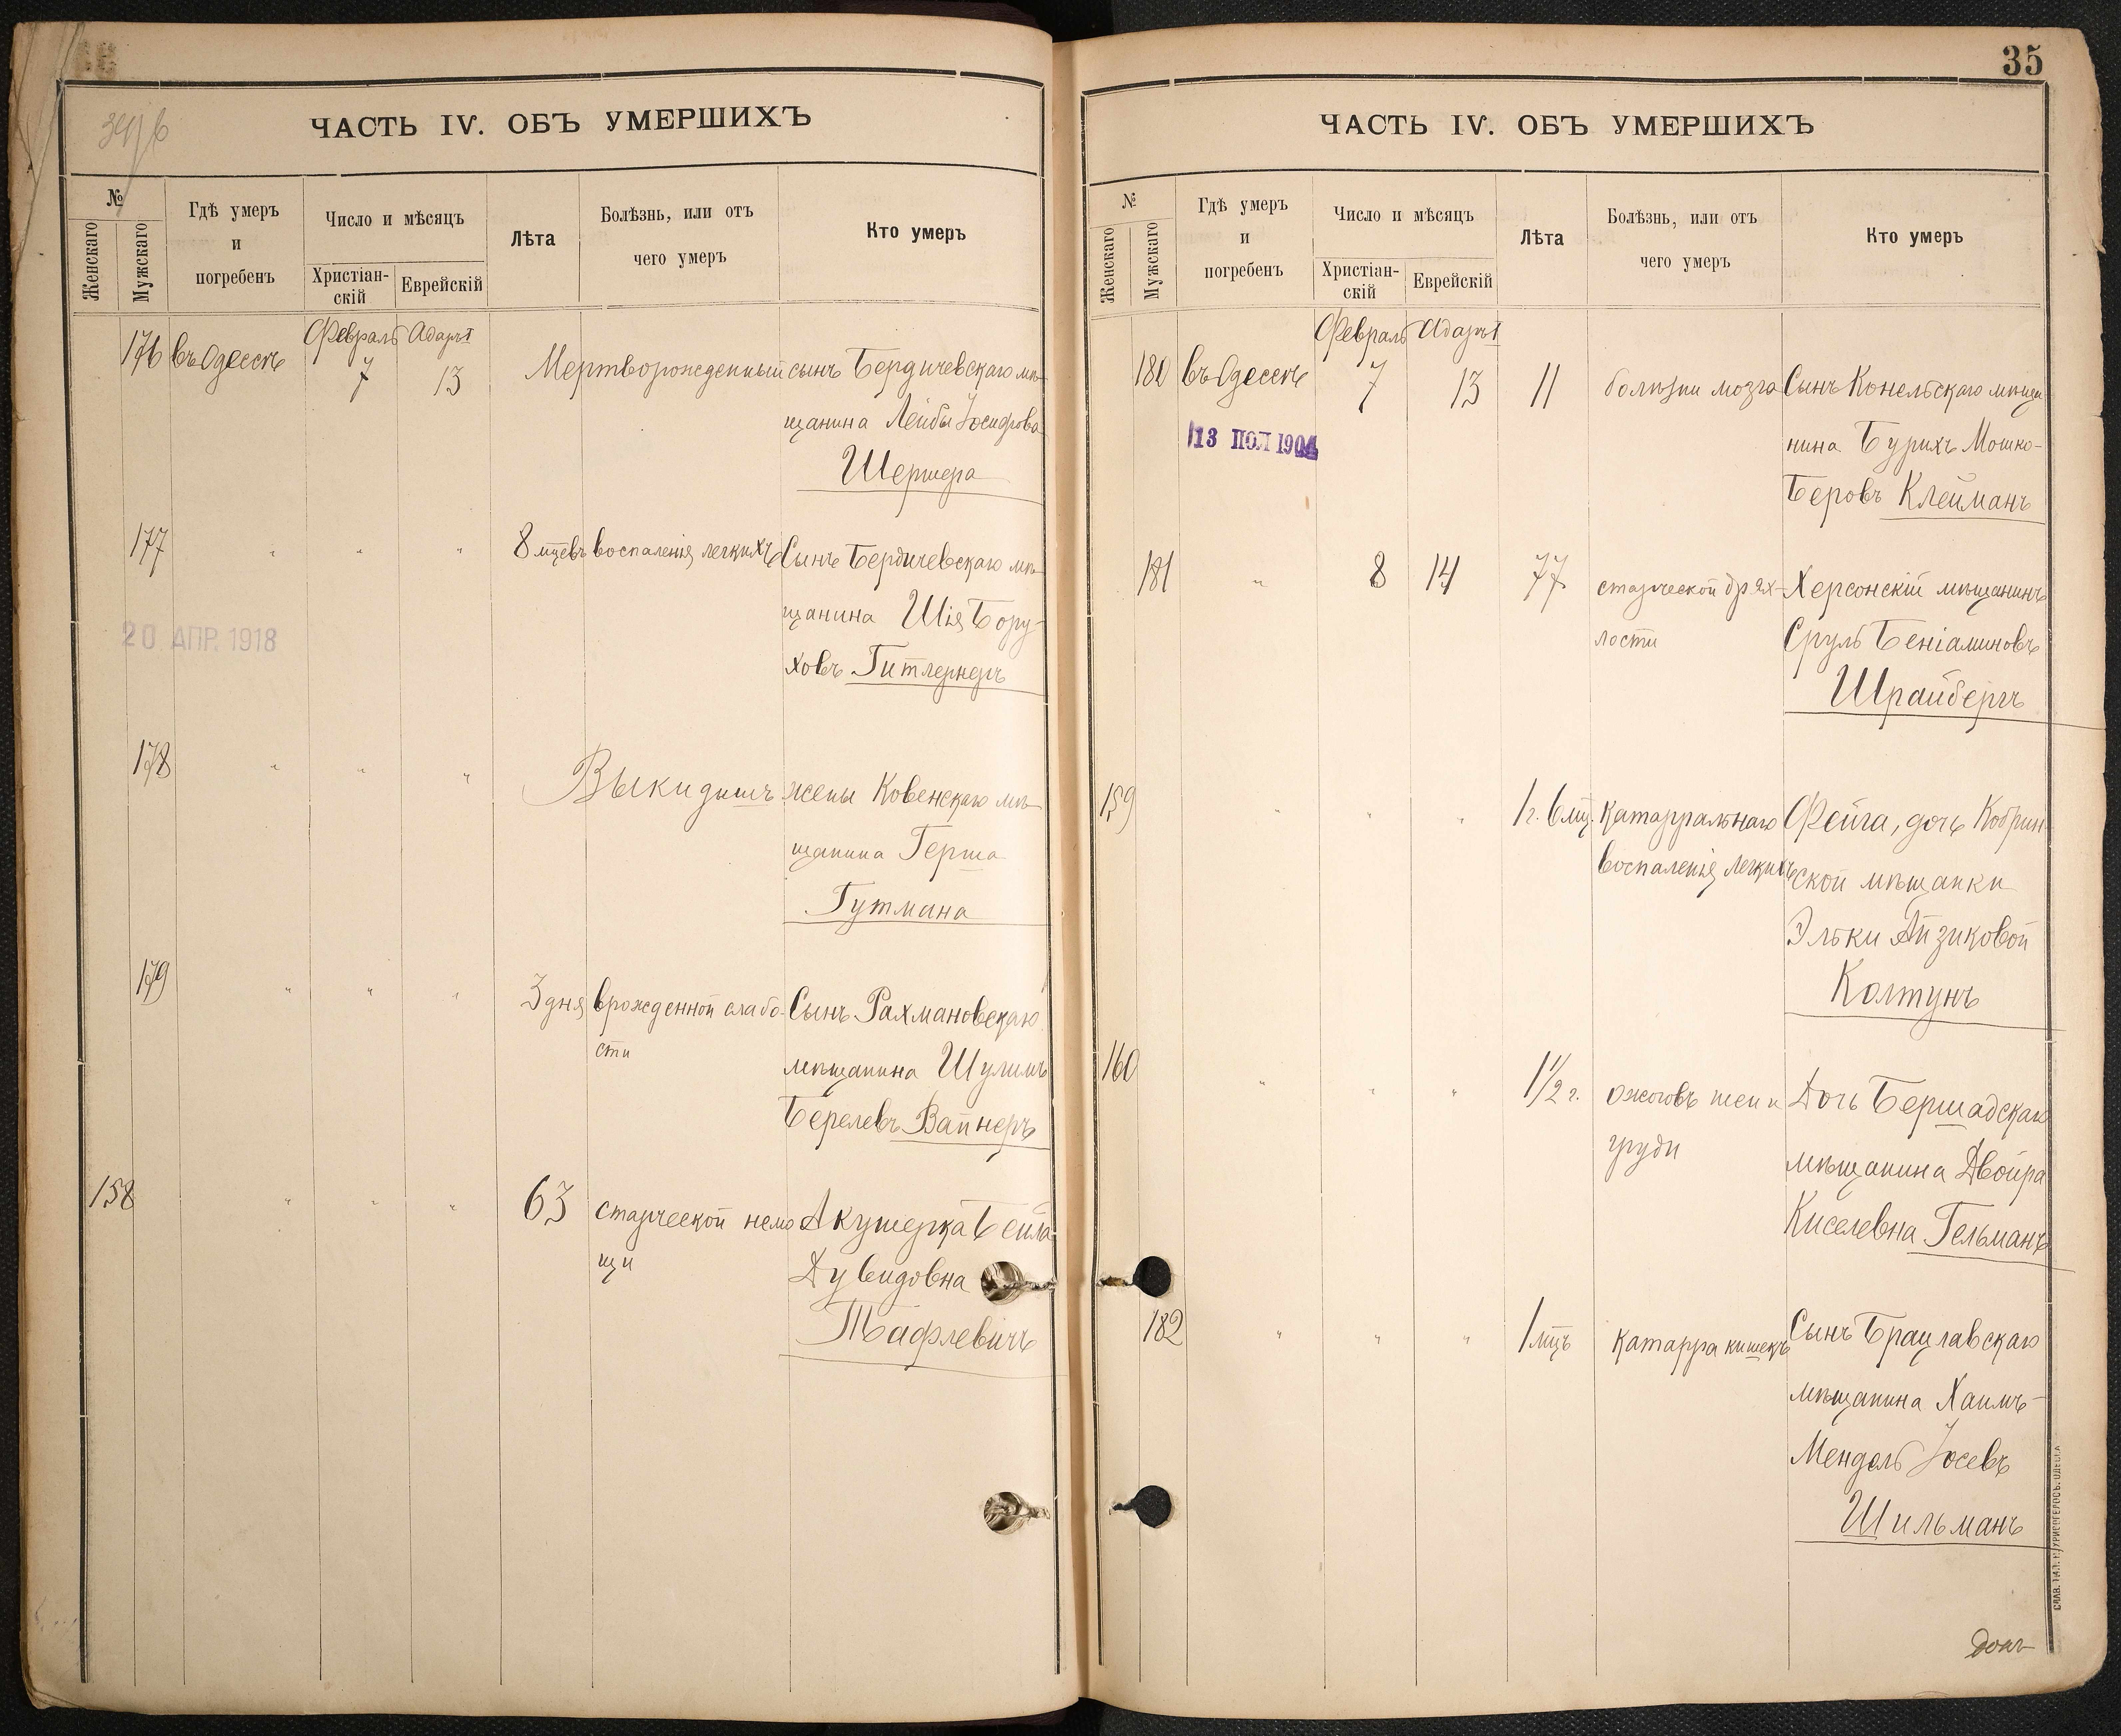 ЧАСТЬ IV. ОБЪ УМЕРШИХЪ
№
Женскаго
Мужскаго
Гдѣ умеръ
и
погребенъ
Число и мѣсяцъ
Христіан-
скій
Еврейскій
Лѣта
Болѣзнь, или отъ
чего умеръ
Кто умеръ
Февраль Адаръ I
176 въ Одессѣ 7 13 Мертворожденный сынъ Бердичевскаго мѣ-
щанина Лейбы Іосифова
Шермера
177 " " " 8 мцевъ воспаленія легкихъ Сынъ Бердичевскаго мѣ-
щанина Шія Бору-
ховъ Гитлернеръ
20 АПР. 1918
178 " " " Выкидышъ жены Ковенскаго мѣ-
щанина Герша
Гутмана
179 " " " 3 дня врожденной слабо- Сынъ Рахмановскаго
сти
мѣщанина Шулимъ
Берелевъ Вайнеръ
158 " " " 63 старческой немо Акушерка Бейла
щи
Дувидовна
Тафлевичъ
35
ЧАСТЬ IV. ОБЪ УМЕРШИХЪ
№
Женскаго
Мужскаго
Гдѣ умеръ
и
погребенъ
Число и мѣсяцъ
Христіан-
скій
Еврейскій
Лѣта
Болѣзнь, или отъ
чего умеръ
Кто умеръ
Февраль Адаръ I
180 въ Одессѣ 7 13 11 болѣзни мозга Сынъ Конельскаго мѣща
нина Бурихъ Мошко-
Беровъ Клейманъ
13 ПОЛ 1904
181 " 8 14 77 старческой дрях- Херсонскій мѣщанинъ
лости Сруль Беніаминовъ
Шрайбергъ
159 " " " 1 г. 6 мц. катарральнаго Фейга, дочь Кобрин-
воспаленія легкихъ ской мѣщанки
Эльки Айзиковой
Колтунъ
160 " " " 1 1/2 г. ожоговъ шеи и Дочь Бершадскаго
груди
мѣщанина Двойра
Киселевна Гельманъ
182 " " " 1 мцъ катарра кишекъ Сынъ Брацлавскаго
мѣщанина Хаимъ-
Мендель Іосевъ
Шильманъ